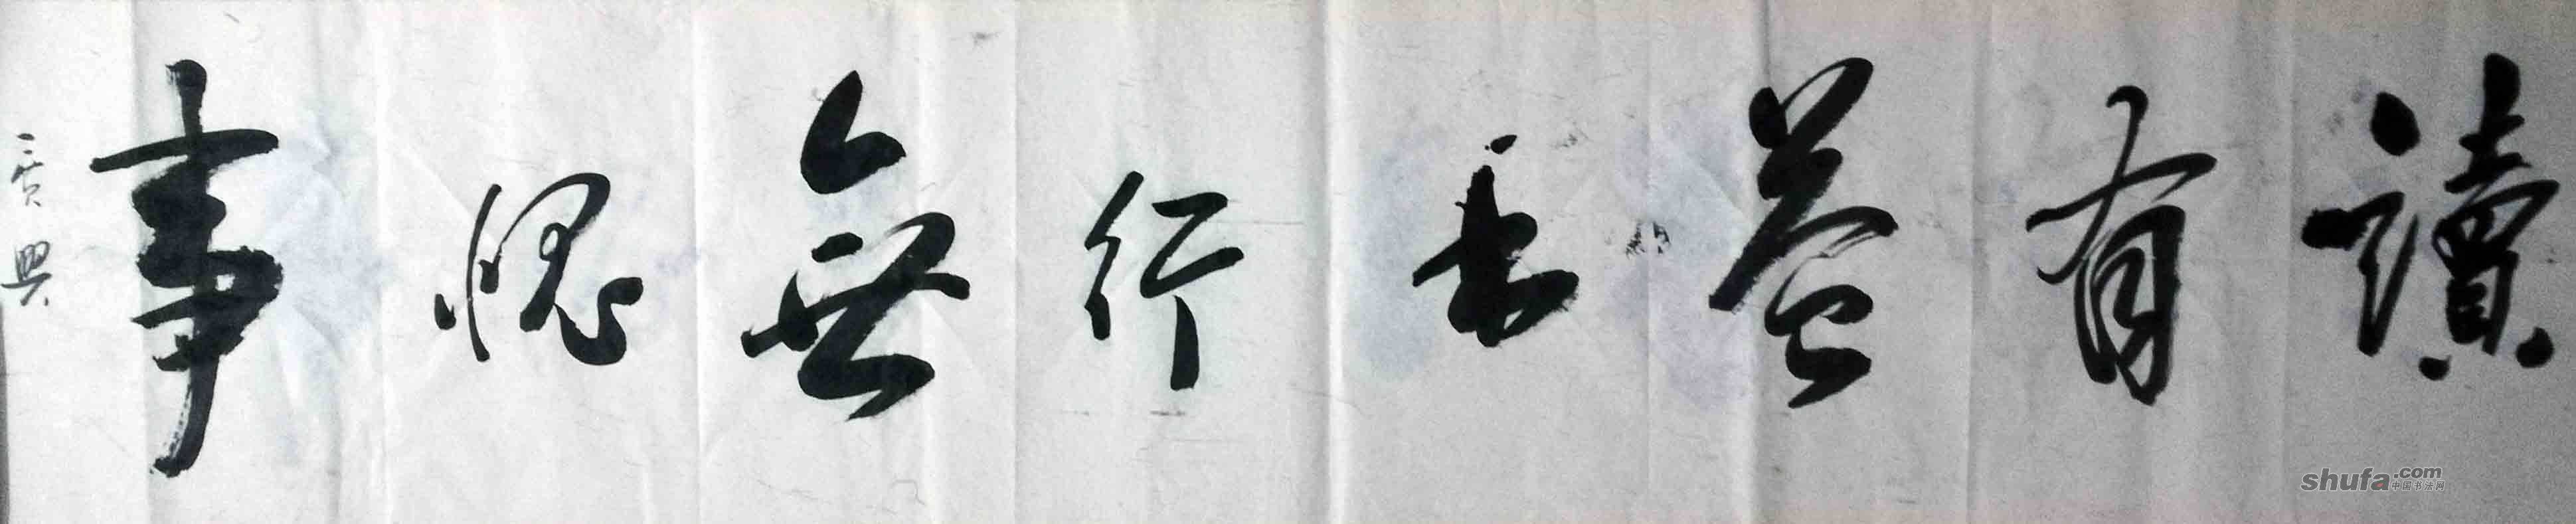 讀有益書行無愧事
shufa.com
中国书法网